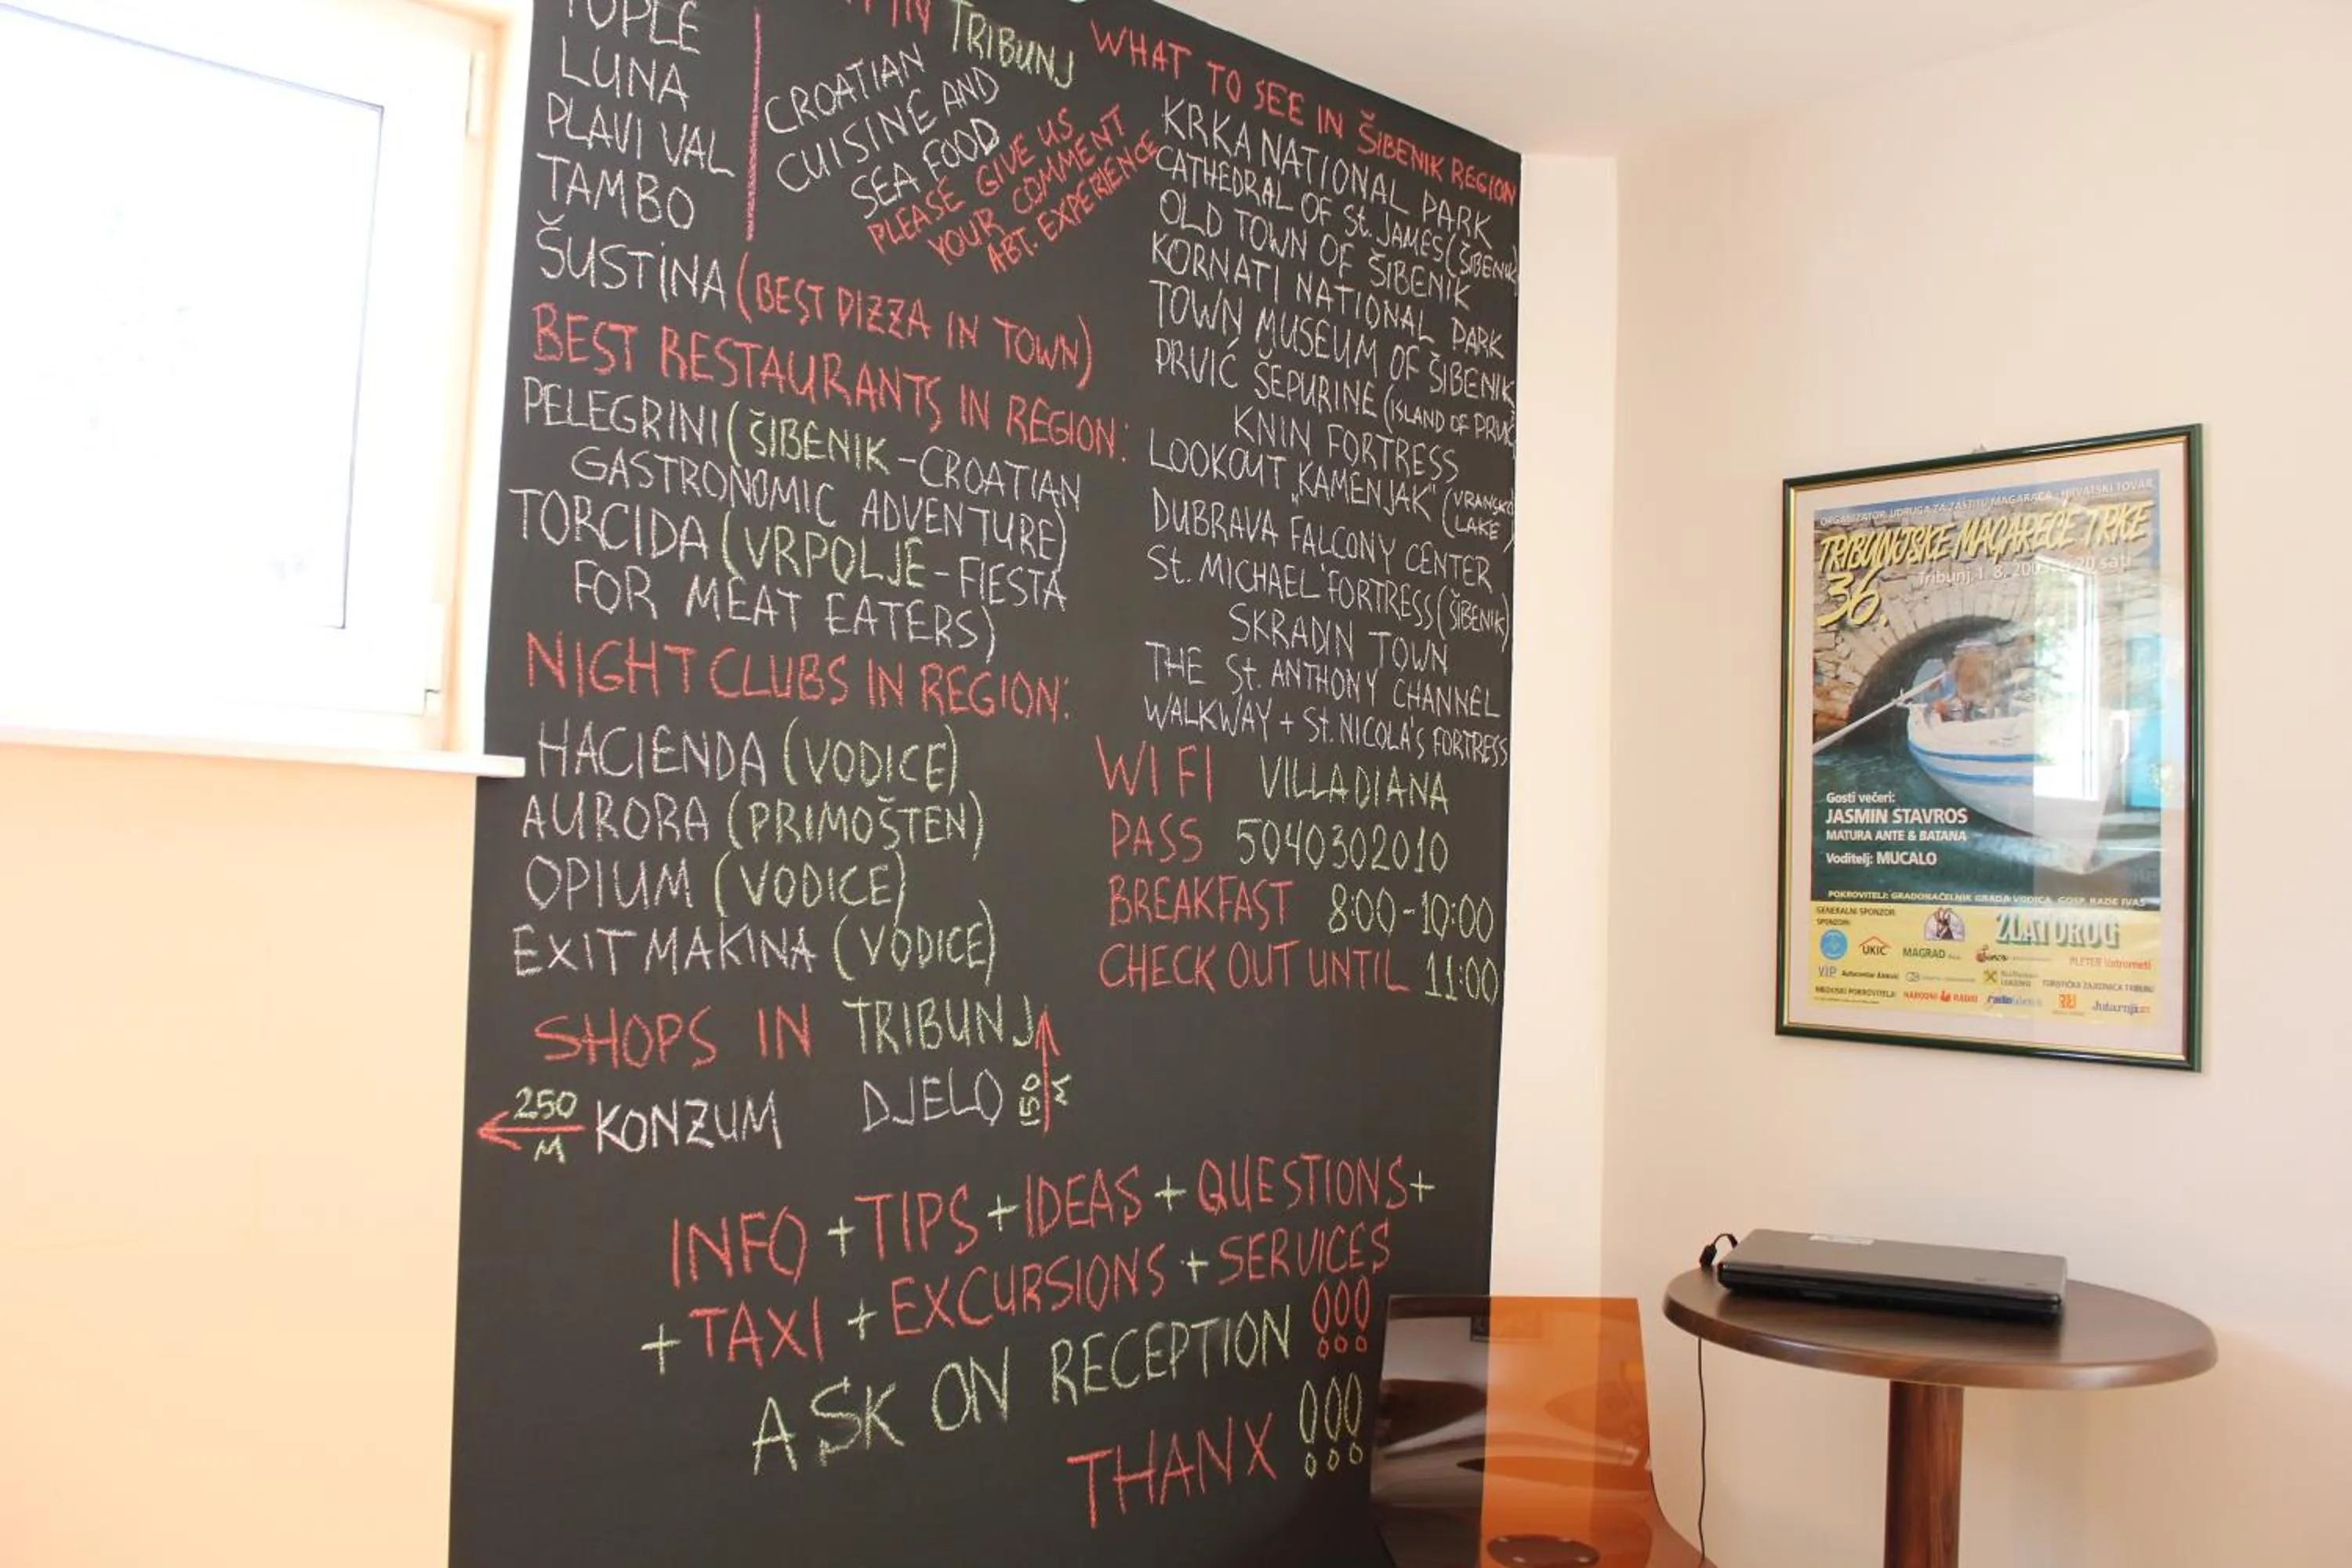 TOPLE
LUNA
PLAVI VAL
TAMBO
ŠUSTINA (BEST PIZZA IN TOWN)
IN TRIBUNJ
CROATIAN
CUISINE AND
SEA FOOD
PLEASE GIVE US
YOUR COMMENT
ABT. EXPERIENCE
BEST RESTAURANTS IN REGION:
PELEGRINI (ŠIBENIK - CROATIAN
GASTRONOMIC ADVENTURE)
TORCIDA (VRPOLJE - FIESTA
FOR MEAT EATERS)
NIGHT CLUBS IN REGION:
HACIENDA (VODICE)
AURORA (PRIMOŠTEN)
OPIUM (VODICE)
EXIT MAKINA (VODICE)
SHOPS IN TRIBUNJ
250 M KONZUM DJELO 150 M
WHAT TO SEE IN ŠIBENIK REGION
KRKA NATIONAL PARK
CATHEDRAL OF St. JAMES (ŠIBENIK)
OLD TOWN OF ŠIBENIK
KORNATI NATIONAL PARK
TOWN MUSEUM OF ŠIBENIK
PRVIĆ ŠEPURINE (ISLAND OF PRVIĆ
KNIN FORTRESS
LOOKOUT „KAMENJAK" (VRANSKO
LAKE)
DUBRAVA FALCONY CENTER
St. MICHAEL FORTRESS (ŠIBENIK)
SKRADIN TOWN
THE St. ANTHONY CHANNEL
WALKWAY + St. NICOLA'S FORTRESS
WI FI VILLA DIANA
PASS 5040302010
BREAKFAST 8:00-10:00
CHECK OUT UNTIL 11:00
INFO + TIPS + IDEAS + QUESTIONS +
+ TAXI + EXCURSIONS + SERVICES
ASK ON RECEPTION !!!
THANX !!!
ORGANIZATOR: UDRUGA ZA ZAŠTITU MAGARACA HRVATSKI TOVAR
TRIBUNJSKE MAGAREĆE TRKE
36.
Tribunj 1. 8. 20 sati
Gosti večeri:
JASMIN STAVROS
MATURA ANTE & BATANA
Voditelj: MUCALO
POKROVITELJ: GRADONAČELNIK GRADA VODICA, GOSP. RADE IVAS
GENERALNI SPONZOR:
ZLATOROG
SPONZORI:
UKIC
MAGRAD
PLETER Vatrometi
VIP
TURISTIČKA ZAJEDNICA TRIBUNJ
MEDIJSKI POKROVITELJI:
NARODNI RADIO
Jutarnji